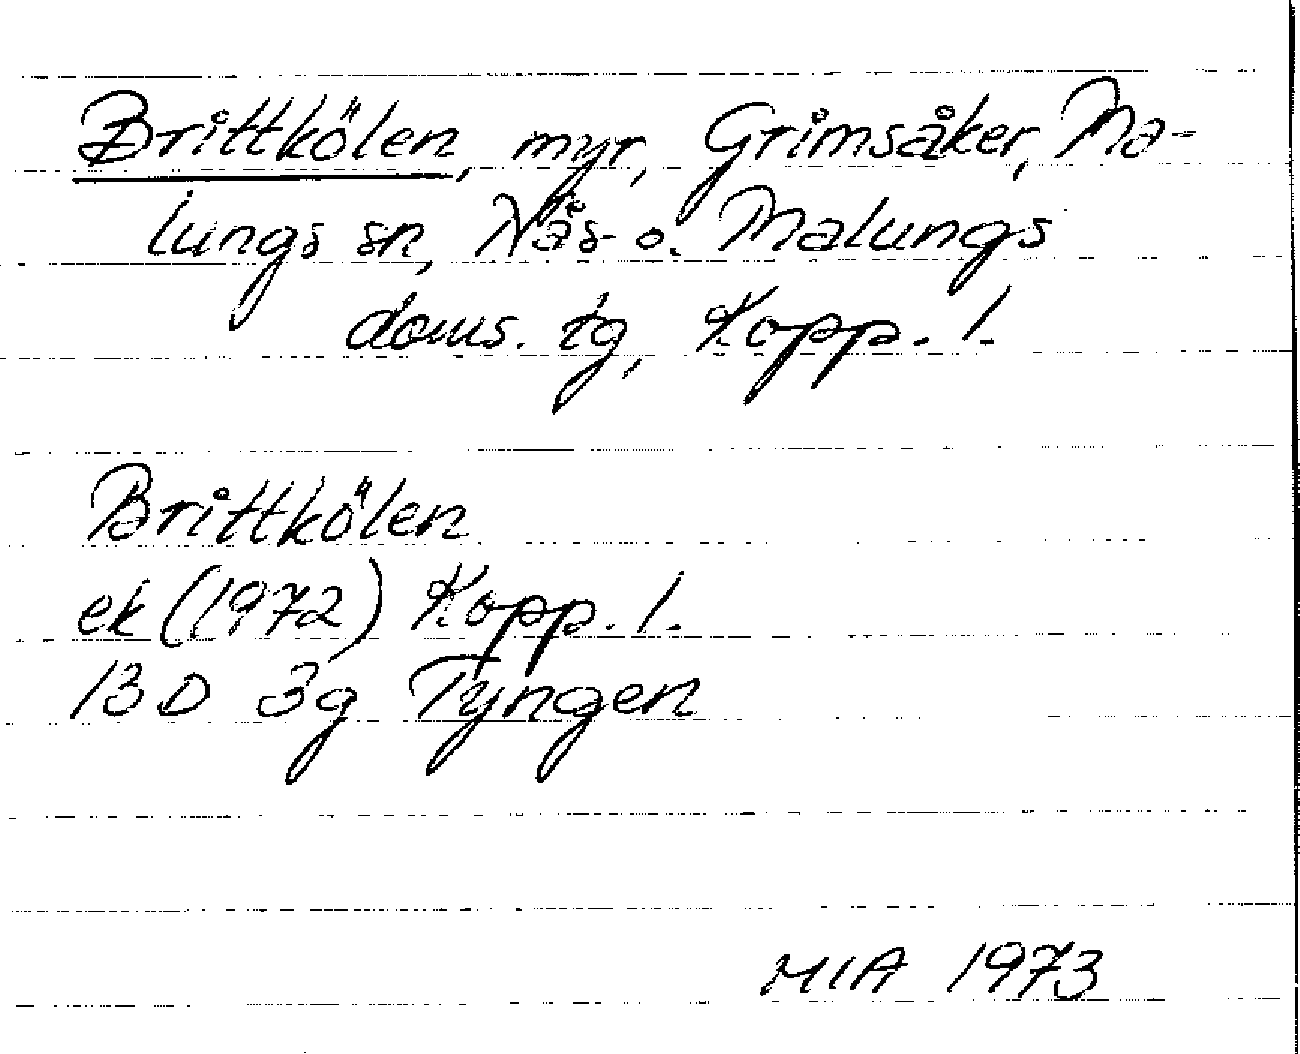 Brittkölen, myr, Grimsåker, Ma-
lungs sn, Nås- o. Malungs
doms. tg, Kopp. l.
Brittkölen
ek (1972) Kopp. l.
13 D 3g Tyngen
MIA 1973